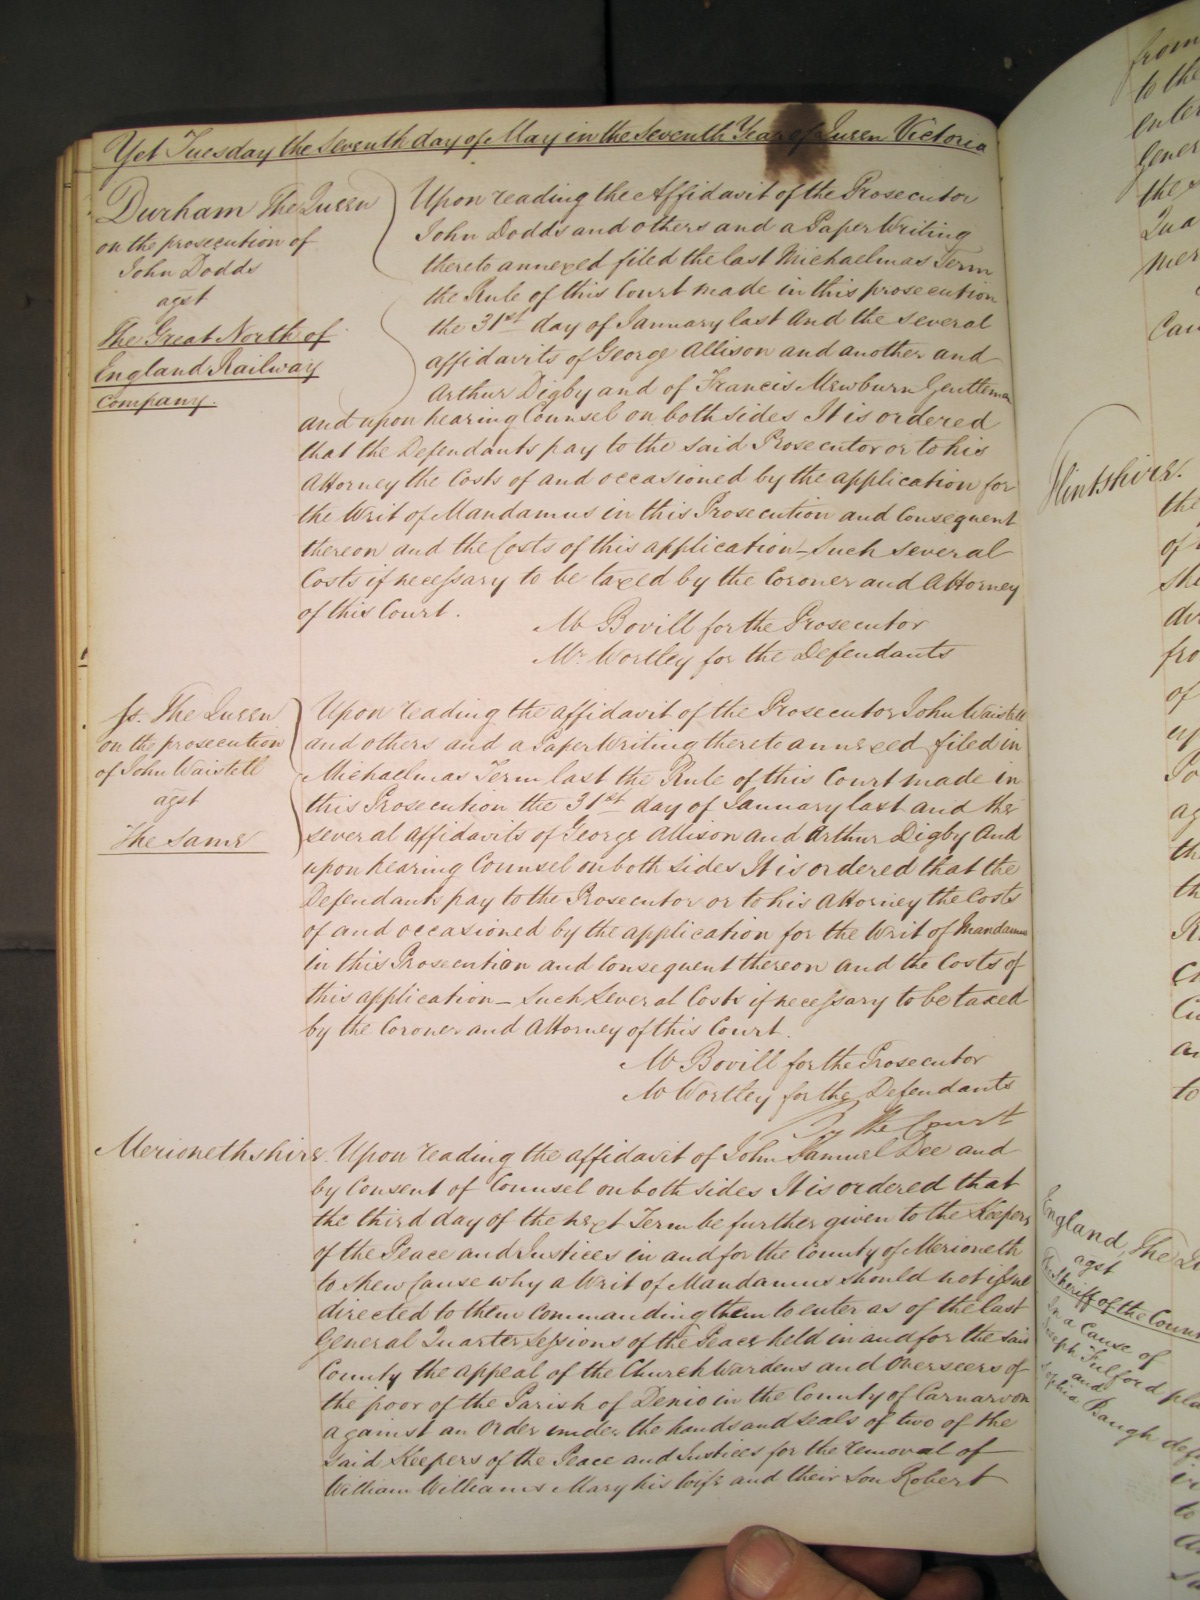 Yet Tuesday the Seventh day of May in the Seventh Year of Queen Victoria
Durham The Queen
on the prosecution of
John Dodds
agst
The Great North of
England Railway
Company.
Upon reading the Affidavit of the Prosecutor
John Dodds and others and a Paper Writing
thereto annexed filed the last Michaelmas Term
the Rule of this Court made in this prosecution
the 31st day of January last and the several
affidavits of George Allison and another and
Arthur Digby and of Francis Mewburn Gentleman
and upon hearing Counsel on both sides It is ordered
that the Defendants pay to the said Prosecutor or to his
Attorney the Costs of and occasioned by the application for
the Writ of Mandamus in this Prosecution and Consequent
thereon and the Costs of this application – Such several
Costs if necessary to be taxed by the Coroner and Attorney
of this Court.
Mr Bovill for the Prosecutor
Mr Wortley for the Defendants
ss. The Queen
on the prosecution
of John Waistell
agst
The Same
Upon reading the affidavit of the Prosecutor John Waistell
and others and a Paper Writing thereto annexed filed in
Michaelmas Term last the Rule of this Court made in
this Prosecution the 31st day of January last and the
several affidavits of George Allison and Arthur Digby And
upon hearing Counsel on both sides It is ordered that the
Defendants pay to the Prosecutor or to his Attorney the Costs
of and occasioned by the application for the Writ of Mandamus
in this Prosecution and Consequent thereon and the Costs of
this application – Such Several Costs if necessary to be taxed
by the Coroner and Attorney of this Court.
Mr Bovill for the Prosecutor
Mr Wortley for the Defendants
By the Court
Merionethshire. Upon reading the affidavit of John Samuel Dee and
by Consent of Counsel on both sides It is ordered that
the third day of the next Term be further given to the Keepers
of the Peace and Justices in and for the County of Merioneth
to shew Cause why a Writ of Mandamus should not issue
directed to them commanding them to enter as of the last
General Quarter Sessions of the Peace held in and for the said
County the appeal of the Church Wardens and Overseers of
the poor of the Parish of Denio in the County of Carnarvon
against an Order under the hands and seals of two of the
said Keepers of the Peace and Justices for the removal of
William Williams Mary his Wife and their Son Robert
from
to the
enter
Gener
the
Qua
Flintshire.
the
of
England, The
agst
The Sheriff of the Coun
In a Cause of
Joseph Fulford pla
and